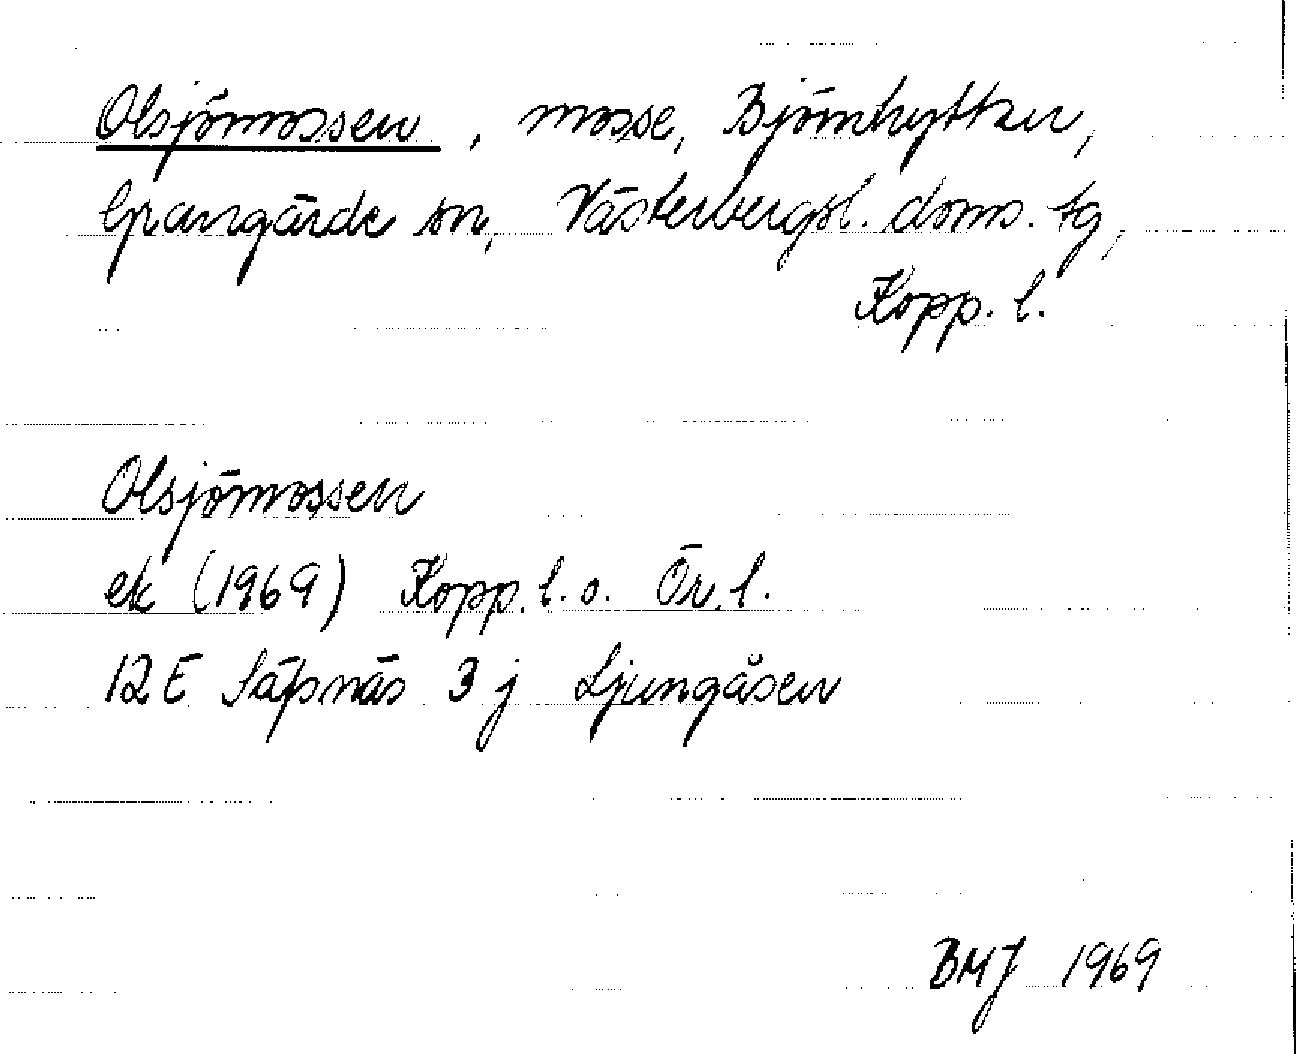 Olsjömossen, mosse, Björnhyttan,
Grangärde sn, Västerbergsl. doms. tg,
Kopp. l.
Olsjömossen
ek (1969) Kopp. l. o. Ör. l.
12 E Säfsnäs 3 j Ljungåsen
BMJ 1969